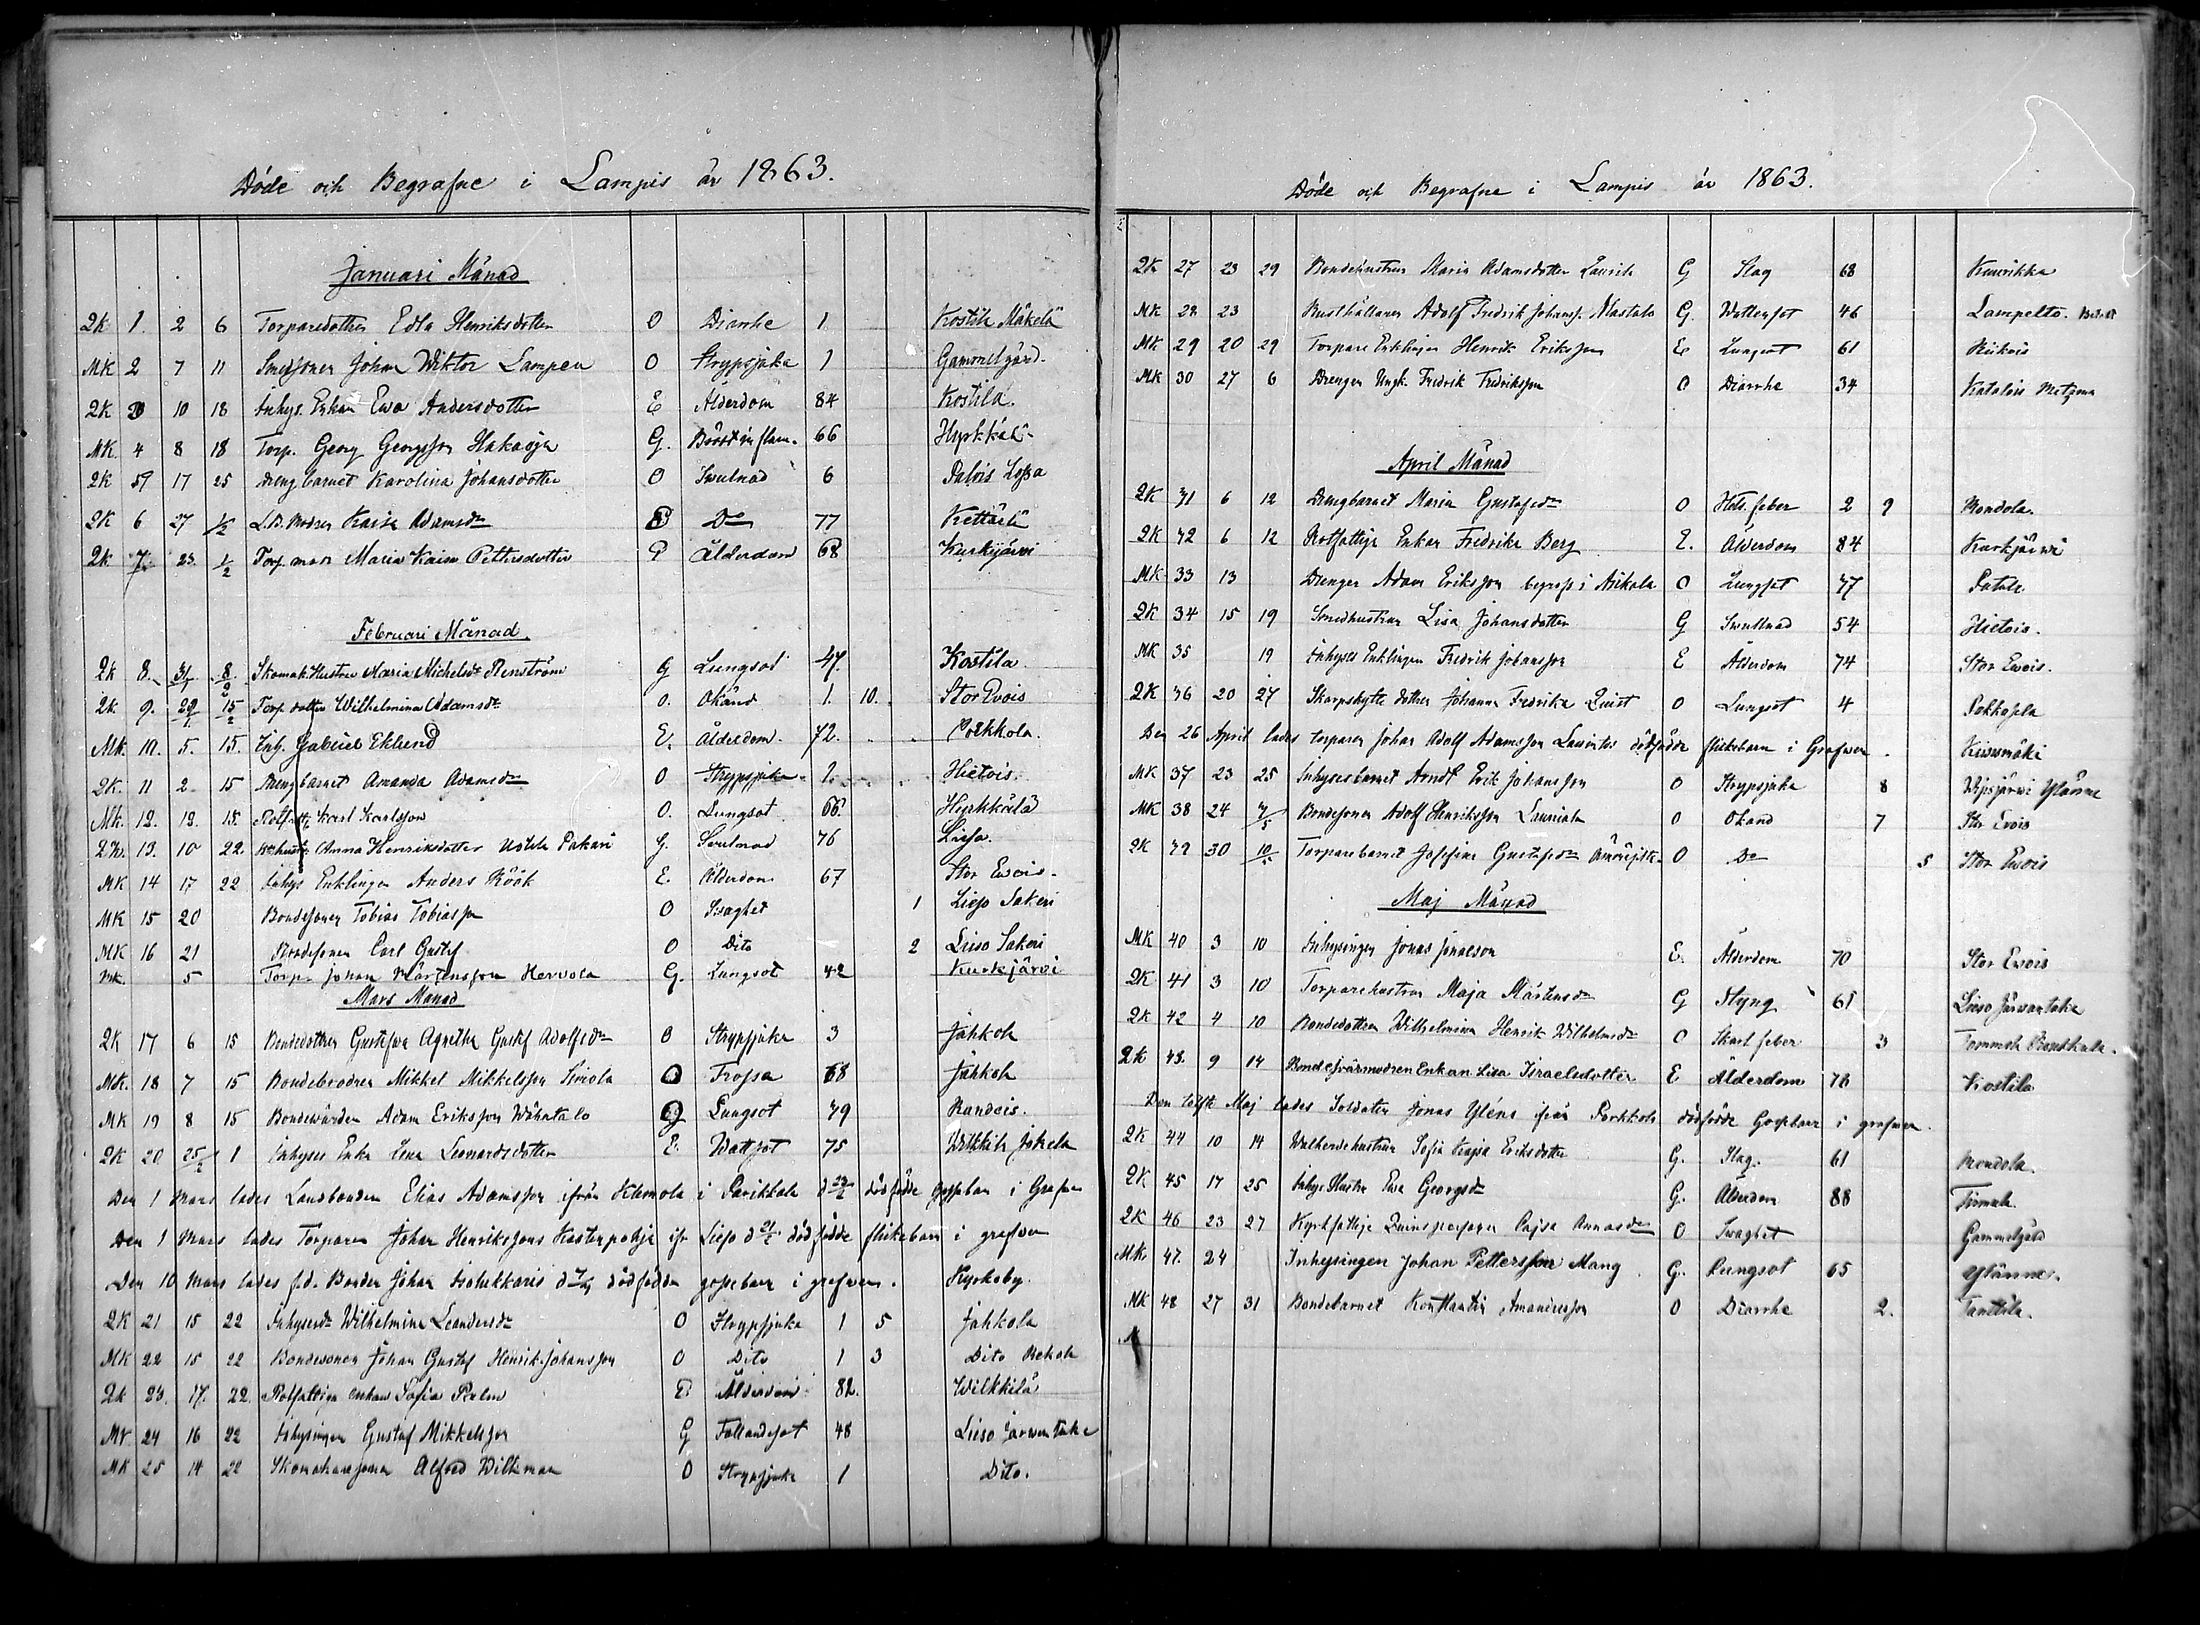 Döde och Begrafne i Lampis år 1863.
Januari Månad
QK 1. 2 6 Torparedottren Edla Henriksdotter O Diarrhe 1. Kostila Mäkelä
MK 2 7 11 Smedsonen Johan Wiktor Lampen O Strypsjuka 1 Gammelgård.
QK 3 10 18 Inhys. Enkan Ewa Andersdotter E Ålderdom 84 Kostila.
MK. 4 8 18 Torp. Georg Georgsson Hakaoja G. Bröstinflam. 66 Hyrkkälä
QK 5 17 25 Drengbarnet Karolina Johansdotter O Swulnad 6 Palois
QK 6 27 1/2 Kaisa Adamsdr Do 77
QK 7. 23. 1/2 Torp. mor Maria Kaisa Pettersdotter Ålderdom 68 Kurkijärvi
Februari Månad.
QK 8. 31/1 8/2 Skomak. Hustru Maria Michelsdr Renström G Lungsot 47. Kostila.
QK. 9. 29/1. 15/2 Torp. dotter Wilhelmina Adamsdr O. Okänd 1. 10. Stor Evois
MK. 10. 5. 15. Inh. Gabriel Eklund E. Ålderdom. 72. Porkkola.
QK. 11 2 15 Drengbarnet Amanda Adamsdr O Strypsjuka Hietois.
MK. 12. 12. 15. Rotfatt. Karl Karlsson O. Lungsot 66. Hyrkkälä
QK. 13. 10 22. Anna Henriksdotter Pakari G. Swulnad 76 Lieso.
MK 14 17 22 Inhys Enklingen Anders Köök E. Ålderdom 67 Stor Evois.
MK 15 20 Bondesonen Tobias Tobiasson O Swaghet 1 Lieso Sakeri
MK 16 21 Bondesonen Carl Gustaf O Dito 2 Lieso Sakeri
MK. 5 Torp. Johan Mårtensson Hervola G. Lungsot 42 Kurkjärvi
Mars Månad
QK 17 6 15 Bondedottren Gustafva Agnetha Gustaf Adolfsdr O Strypsjuka 3 Jahkola
MK. 18 7 15 Bondebrodren Mikkel Mikkelsson Simola O Frossa 68 Jahkola
MK 19 8 15 Bondevärden Adam Eriksson Wähätalo G Lungsot 79
QK 20 25/2 1 Inhyses Enka Lena Leonardsdotter E. Wattsot 75 Wilkkilä Jokela
Den 1 Mars lades Landbonden Elias Adamsson ifrån Klemola i Parikkala dödfödde gossebarn i Grafven
Den 1 Mars lades Torparen Johan Henrikssons ifr Lieso dödfödde flickebarn i grafven
Den 10 Mars lades f.d. Bonden Johan dödfödda gossebarn i grafven. Kyrkoby.
QK 21 15 22 Inhysesd. Wilhelmina Leandersdr O Strypsjuka 1 5 Jahkola
MK 22 15 22 Bondesonen Johan Gustaf Henrik Johansson O Dito 1 3 Dito Rekola
QK 23. 17. 22. Rotfattiga enkan Sofia Palm E Ålderdom 82. Wilkkilä
MK 24 16 22 Inhysingen Gustaf Mikkelsson G Fallandesot 48 Lieso Järventaka
MK 25 14 22 Skomakaresonen Alfred Wilkman O Strypsjuka 1 Dito.
Döde och Begrafne i Lampis år 1863.
QK 27 23 29 Bondehustrun Maria Adamsdotter Laurila G Slag 68 Kuurikka
MK 28 23 Rusthållaren Adolf Fredrik Johanss. Nastalo G. Wattensot 46 Lampelto.
MK 29 20 29 Torpare Enklingen Henrik Eriksson E Lungsot 61
MK 30 27 6 Drengen Ungk. Fredrik Fredriksson O Diarrhe 34 Katalois
April Månad
QK 31 6 12 Drengbarnet Maria Gustafsdr O Hets. feber 2 9 Mondola.
QK 32 6 12 Rotfattige Enkan Fredrika Berg E. Ålderdom 84 Kurkjärvi
MK 33 13 Drengen Adam Eriksson begrofs i Asikala O Lungsot 77
QK 34 15 19 Smedhustrun Lisa Johansdotter G Swullnad 54 Hietois.
MK 35 19 Inhyses Enklingen Fredrik Johansson E Ålderdom 74 Stor Evois.
QK 36 20 27 Skarpskytte dottren Johanna Fredrika Quist O Lungsot 4
Den 26 April lades torparen Johan Adolf Adamsson dödfödde flickebarn i Grafven.
MK 37 23 25 Inhysesbarnet Arndt Erik Johansson O Strypsjuka 8
MK 38 24 3/5 Bondesonen Adolf Henriksson Lauriala O Okänd 7 Stor Evois
QK 39 30 10/5 Torparebarnet Josefina Gustafsdr O Do 5 Stor Evois
Maj Månad
MK 40 3 10 Inhysingen Jonas Jonasson E. Ålderdom 70 Stor Evois
QK 41 3 10 Torparehustrun Maja Mårtensdr G Styng 61 Lieso Järventaka
QK 42 4 10 Bondedottren Wilhelmina Henrik Wilhelmsdr O Skarl. feber 3
QK 43. 9 14 Bondesvärmodren Enkan Lisa Israelsdotter E Ålderdom 78 Kostila
Den tolfte Maj lades Soldaten Jonas Yléns ifrån Porkkola dödfödde Gossebarn i grafven.
QK 44 10 14 Sofia Kajsa Eriksdotter G. Slag. 61 Mondola.
QK 45 17 25 Inhys. Hustru Ewa Georgsdr G. Ålderdom 88
QK 46 23 27 Kyrkfattige Quinspersonen Cajsa Annasdr O Swaghet Gammelgård
MK 47. 24 Inhysingen Johan Pettersson Mang. G. Lungsot 65 Ylänne.
MK 48 27 31 Bondebarnet Konstantin Amandusson O Diarrhe 2. Tanttila.